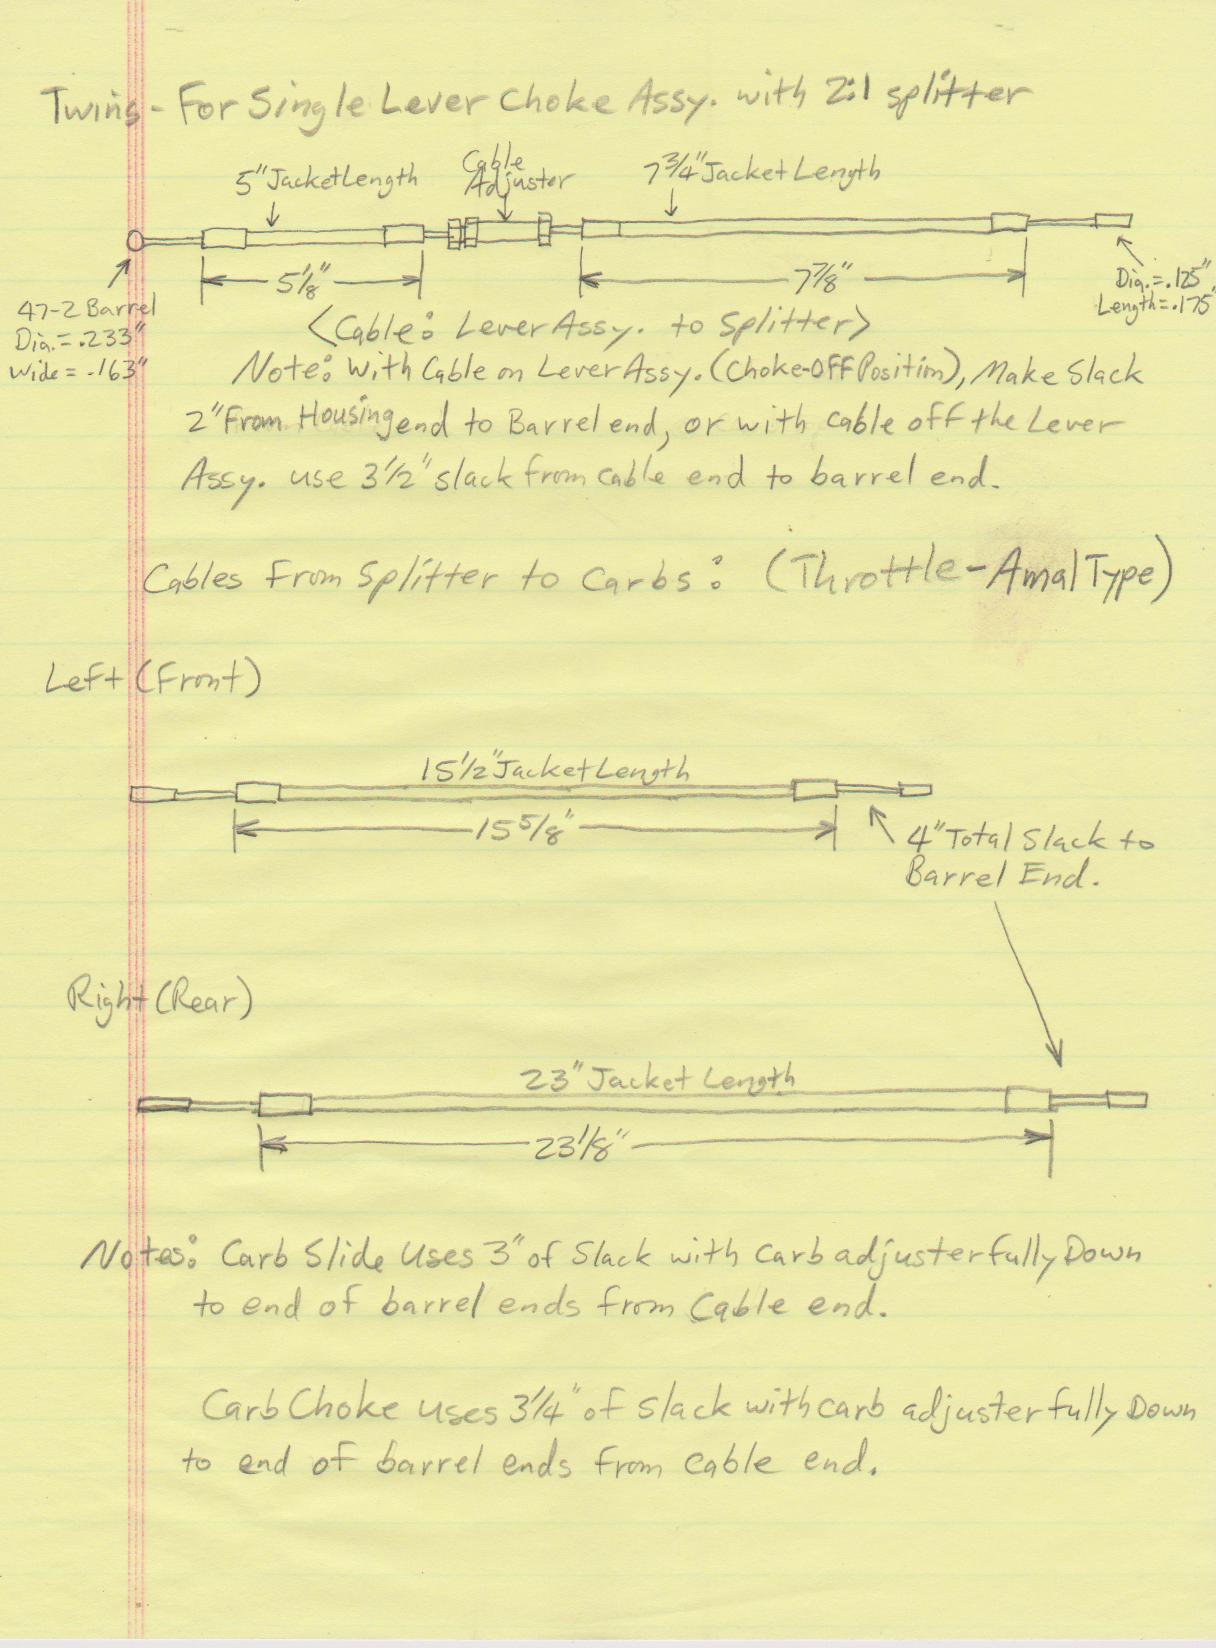 Twins - For Single Lever Choke Assy. with 2:1 splitter
5" Jacket Length
Cable
Adjuster
7 3/4" Jacket Length
5 1/8"
7 7/8"
47-2 Barrel
Dia. = .233"
Wide = .163"
Dia. = .125"
Length = .175"
<Cable: Lever Assy. to Splitter>
Note: With Cable on Lever Assy. (Choke-Off Position), Make Slack
2" From Housing end to Barrel end, or with cable off the Lever
Assy. use 3 1/2" slack from cable end to barrel end.
Cables From Splitter to Carbs: (Throttle-Amal Type)
Left (Front)
15 1/2" Jacket Length
15 5/8"
4" Total Slack to
Barrel End.
Right (Rear)
23" Jacket Length
23 1/8"
Notes: Carb Slide Uses 3" of Slack with Carb adjuster fully Down
to end of barrel ends from Cable end.
Carb Choke uses 3 1/4" of slack with carb adjuster fully Down
to end of barrel ends from cable end.